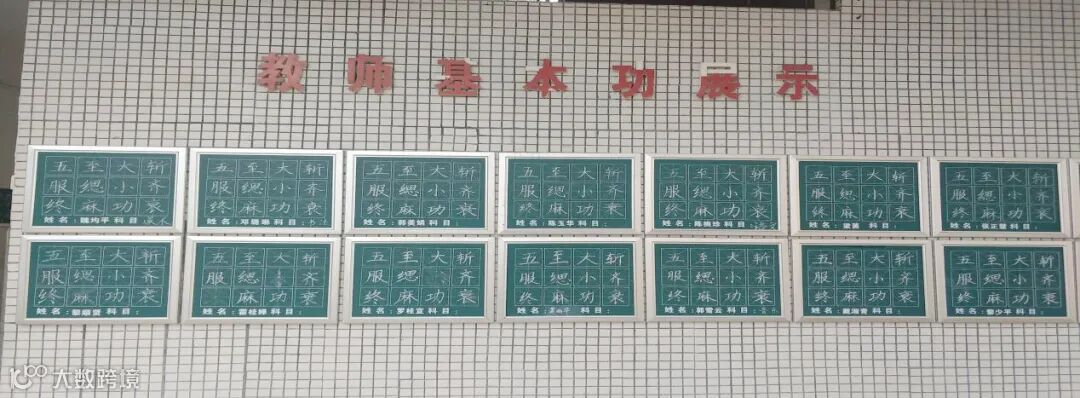 教师基本功展示
五至大斩
服缌小齐
终麻功衰
姓名：魏均平 科目：
五至大斩
服缌小齐
终麻功衰
姓名：邓璐琳 科目：
五至大斩
服缌小齐
终麻功衰
姓名：郭美娟 科目：
五至大斩
服缌小齐
终麻功衰
姓名：陈玉华 科目：
五至大斩
服缌小齐
终麻功衰
姓名：陈桃珍 科目：
五至大斩
服缌小齐
终麻功衰
姓名：梁茜 科目：
五至大斩
服缌小齐
终麻功衰
姓名：侯正慧 科目：
五至大斩
服缌小齐
终麻功衰
姓名：黎顺贤 科目：
五至大斩
服缌 齐
终麻功衰
姓名：雷桂婵 科目：
五至大斩
服缌小齐
终麻功衰
姓名：罗桂宜 科目：
五至大斩
服缌小齐
终麻功衰
姓名： 科目：
五至大斩
服缌小齐
终麻功衰
姓名：郭雪云 科目：音乐
五至大斩
服缌小齐
终麻功衰
姓名：戴淑青 科目：
五至大斩
服缌小齐
终麻功衰
姓名：黎少平 科目：
大数跨境